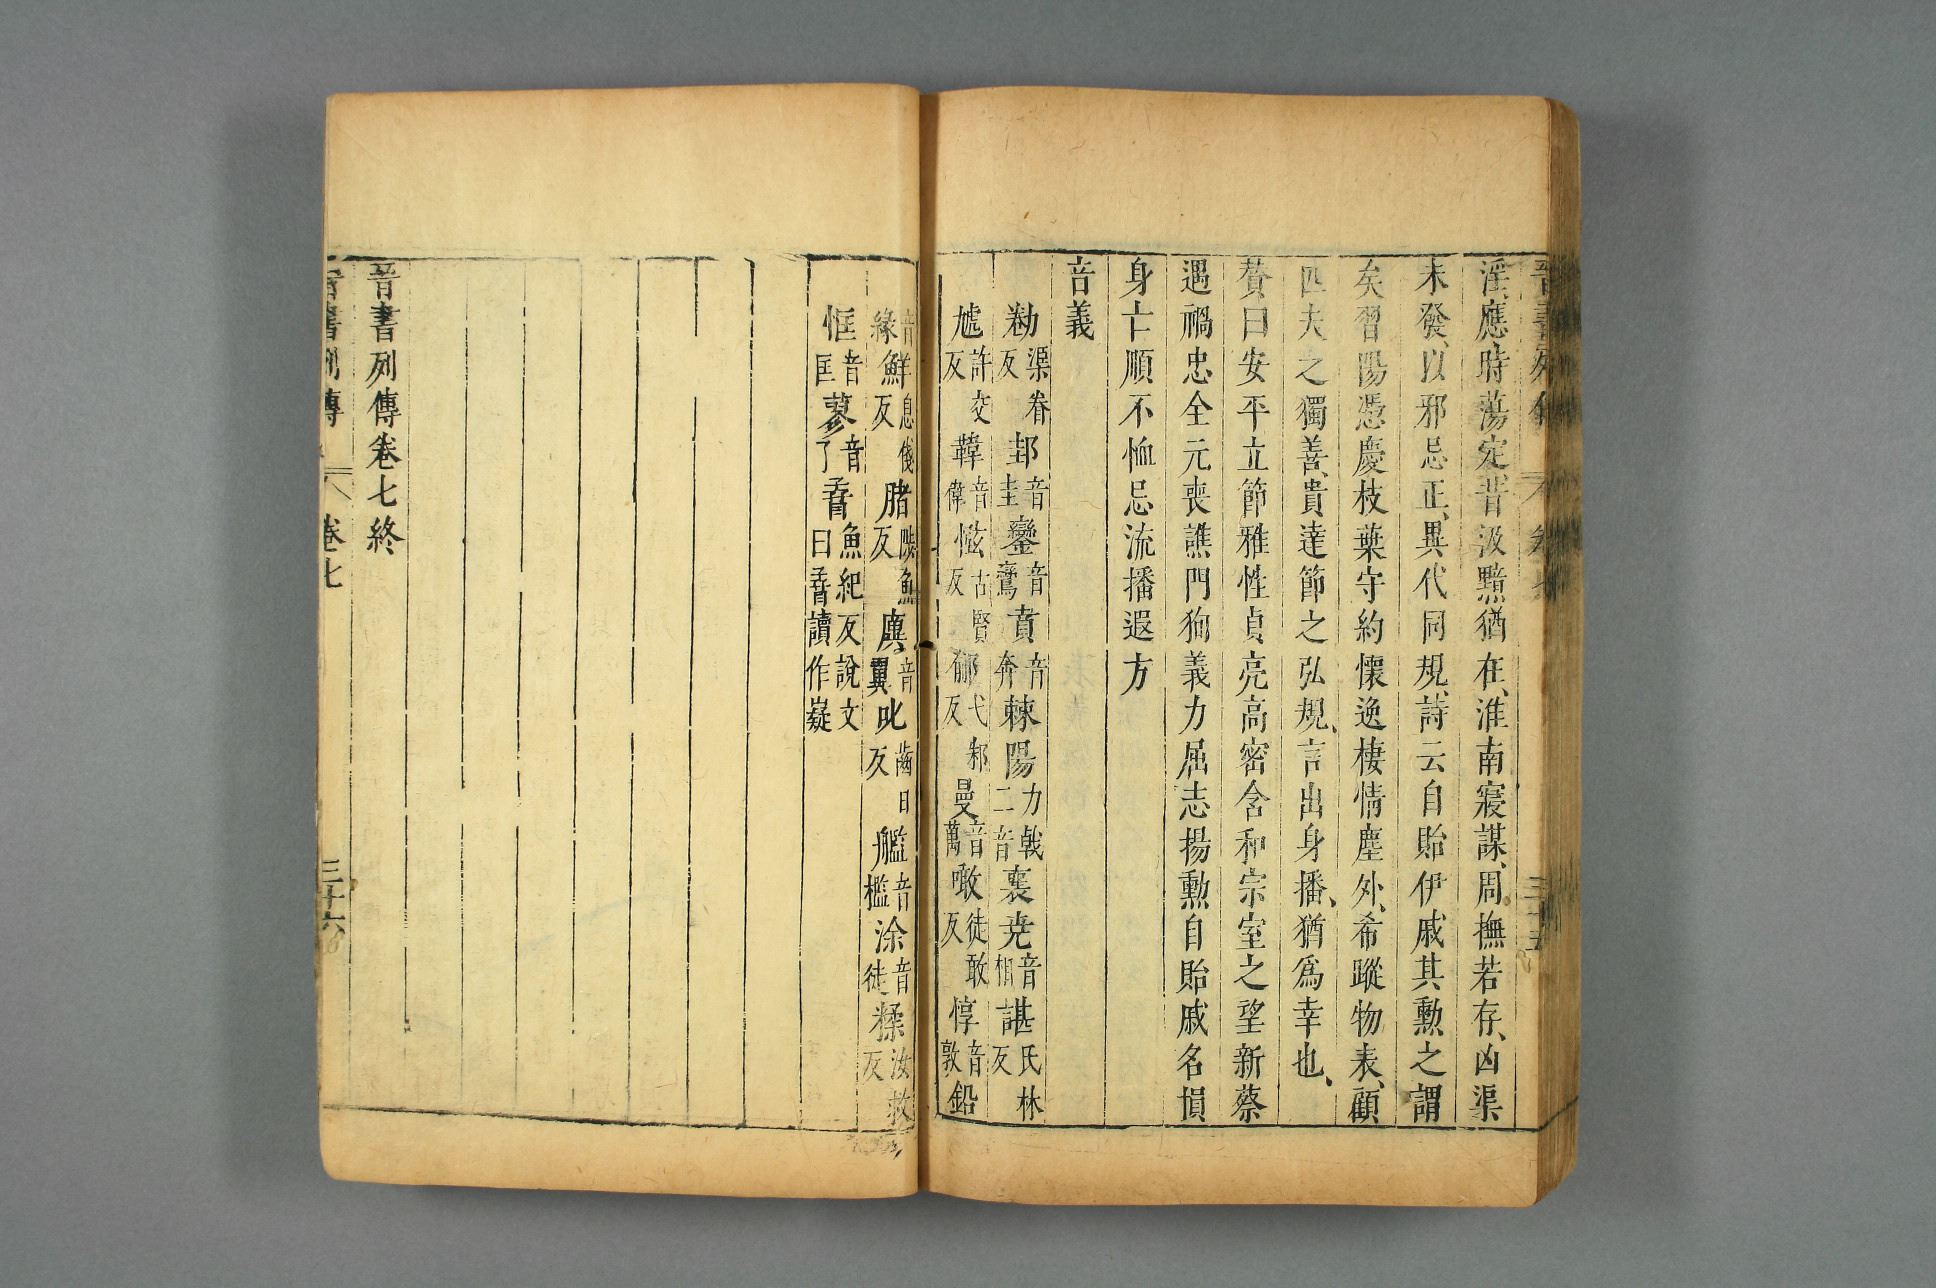 晉書列傳 卷七 三十五
淫應時蕩定昔汲黯猶在淮南寢謀周撫若存凶渠
未發以邪忌正異代同規詩云自貽伊戚其勲之謂
矣習陽憑慶枝葉守約懷逸棲情塵外希蹤物表顧
匹夫之獨善貴達節之弘規言出身播猶爲幸也
贊曰安平立節雅性貞亮高密含和宗室之望新蔡
遇禍忠全元喪譙門狥義力屈志揚勲自貽戚名塤
身亡順不恤忌流播遐方
音義
勌渠眷反邽音圭鑾音鸞賁音奔棘陽力戟二音襄尭音相諶氏林反
虓許交反韡音偉慈古賢反郁弋郝反曼音萬噉徒敢反惇音敦鉛
音緣鮮息俴反賭睒魚反廙音翼叱齒日反艦音檻涂音徒糅汝救反
恇音匡蓼音了孴魚紀反說文曰孴讀作嶷
晉書列傳卷七終
晉書列傳 卷七 三十六